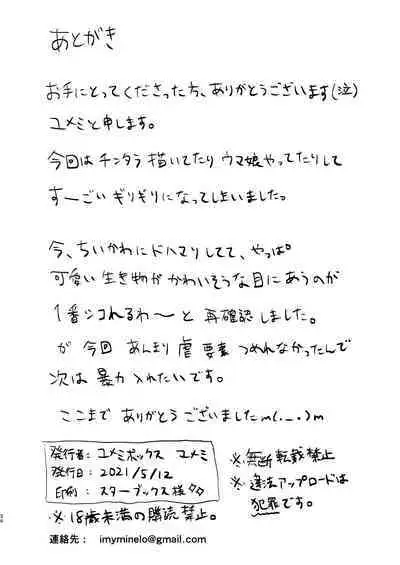 あとがき
お手にとってくださった方、ありがとうございます(泣)
ユメミと申します。
今回はチンタラ描いてたりウマ娘やってたりして
すーごいギリギリになってしまいました。
今、ちいかわにドハマりしてて、やっぱ。
可愛い生き物がかわいそうな目にあうのが
1番シコれるわ〜と再確認しました。
が 今回 あんまり虐要素つめれなかったんで
次は暴力入れたいです。
ここまで ありがとうございましたm(._.)m
発行者：ユメミボックス ユメミ
発行日：2021/5/12
印刷：スターブックス様
※18歳未満の購読禁止。
※無断転載禁止
※違法アップロードは
犯罪です。
連絡先： imyminelo@gmail.com